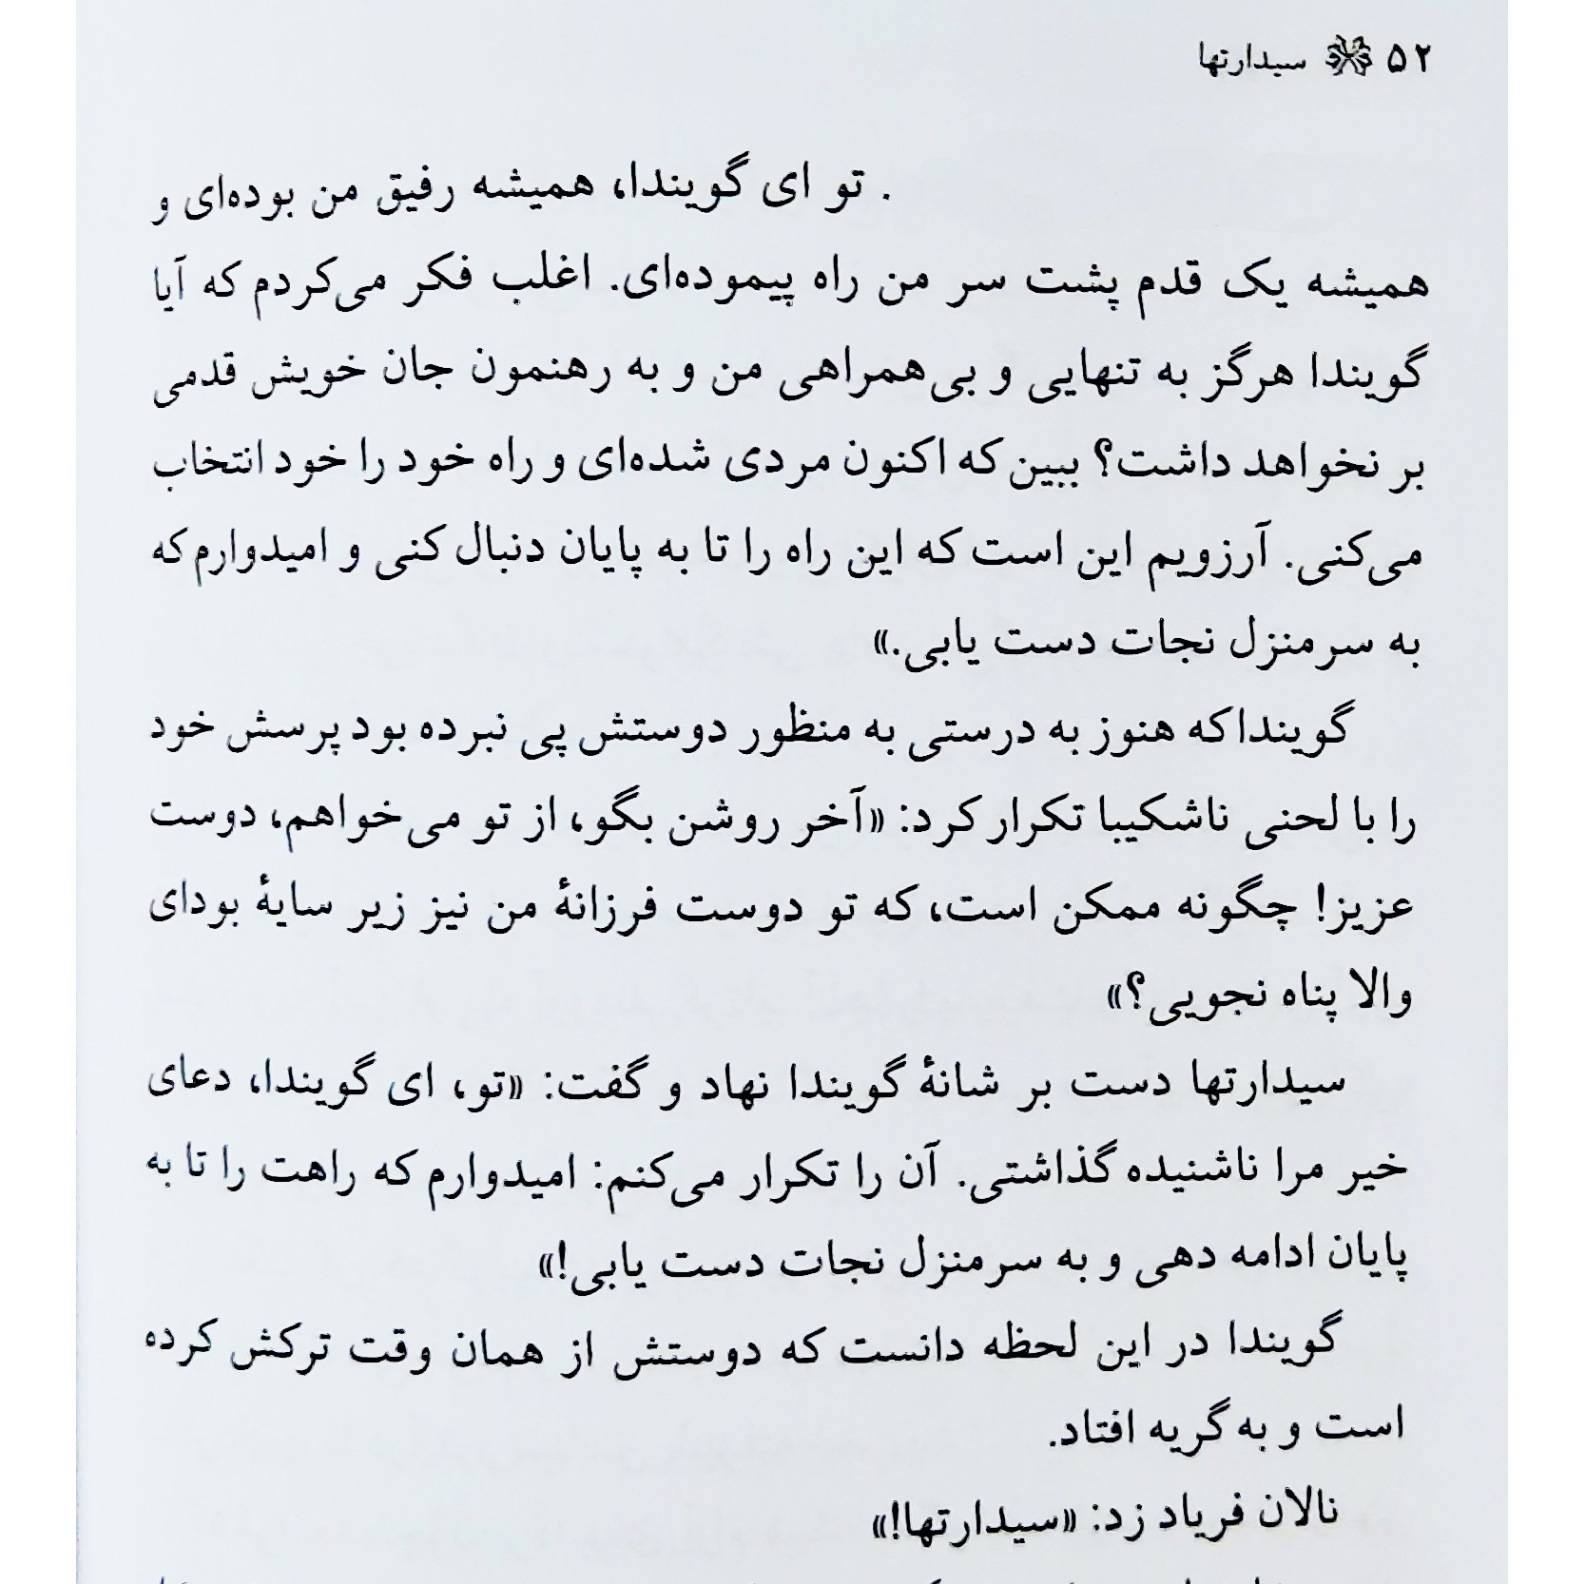 ۵۲ سیدارتها
. تو ای گویندا، همیشه رفیق من بوده‌ای و
همیشه یک قدم پشت سر من راه پیموده‌ای. اغلب فکر می‌کردم که آیا
گویندا هرگز به تنهایی و بی‌همراهی من و به رهنمون جان خویش قدمی
بر نخواهد داشت؟ ببین که اکنون مردی شده‌ای و راه خود را خود انتخاب
می‌کنی. آرزویم این است که این راه را تا به پایان دنبال کنی و امیدوارم که
به سرمنزل نجات دست یابی.»
گویندا که هنوز به درستی به منظور دوستش پی نبرده بود پرسش خود
را با لحنی ناشکیبا تکرار کرد: «آخر روشن بگو، از تو می‌خواهم، دوست
عزیز! چگونه ممکن است، که تو دوست فرزانۀ من نیز زیر سایۀ بودای
والا پناه نجویی؟»
سیدارتها دست بر شانۀ گویندا نهاد و گفت: «تو، ای گویندا، دعای
خیر مرا ناشنیده گذاشتی. آن را تکرار می‌کنم: امیدوارم که راهت را تا به
پایان ادامه دهی و به سرمنزل نجات دست یابی!»
گویندا در این لحظه دانست که دوستش از همان وقت ترکش کرده
است و به گریه افتاد.
نالان فریاد زد: «سیدارتها!»